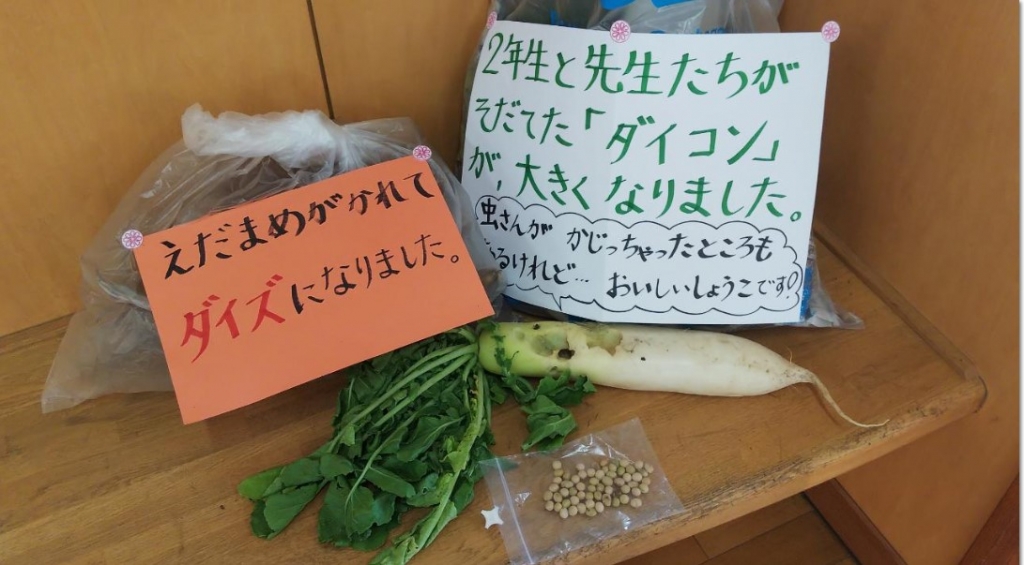 えだまめがかれて
ダイズになりました。
2年生と先生たちが
そだてた「ダイコン」
が、大きくなりました。
虫さんが かじっちゃったところも
あるけれど… おいしいしょうこです!